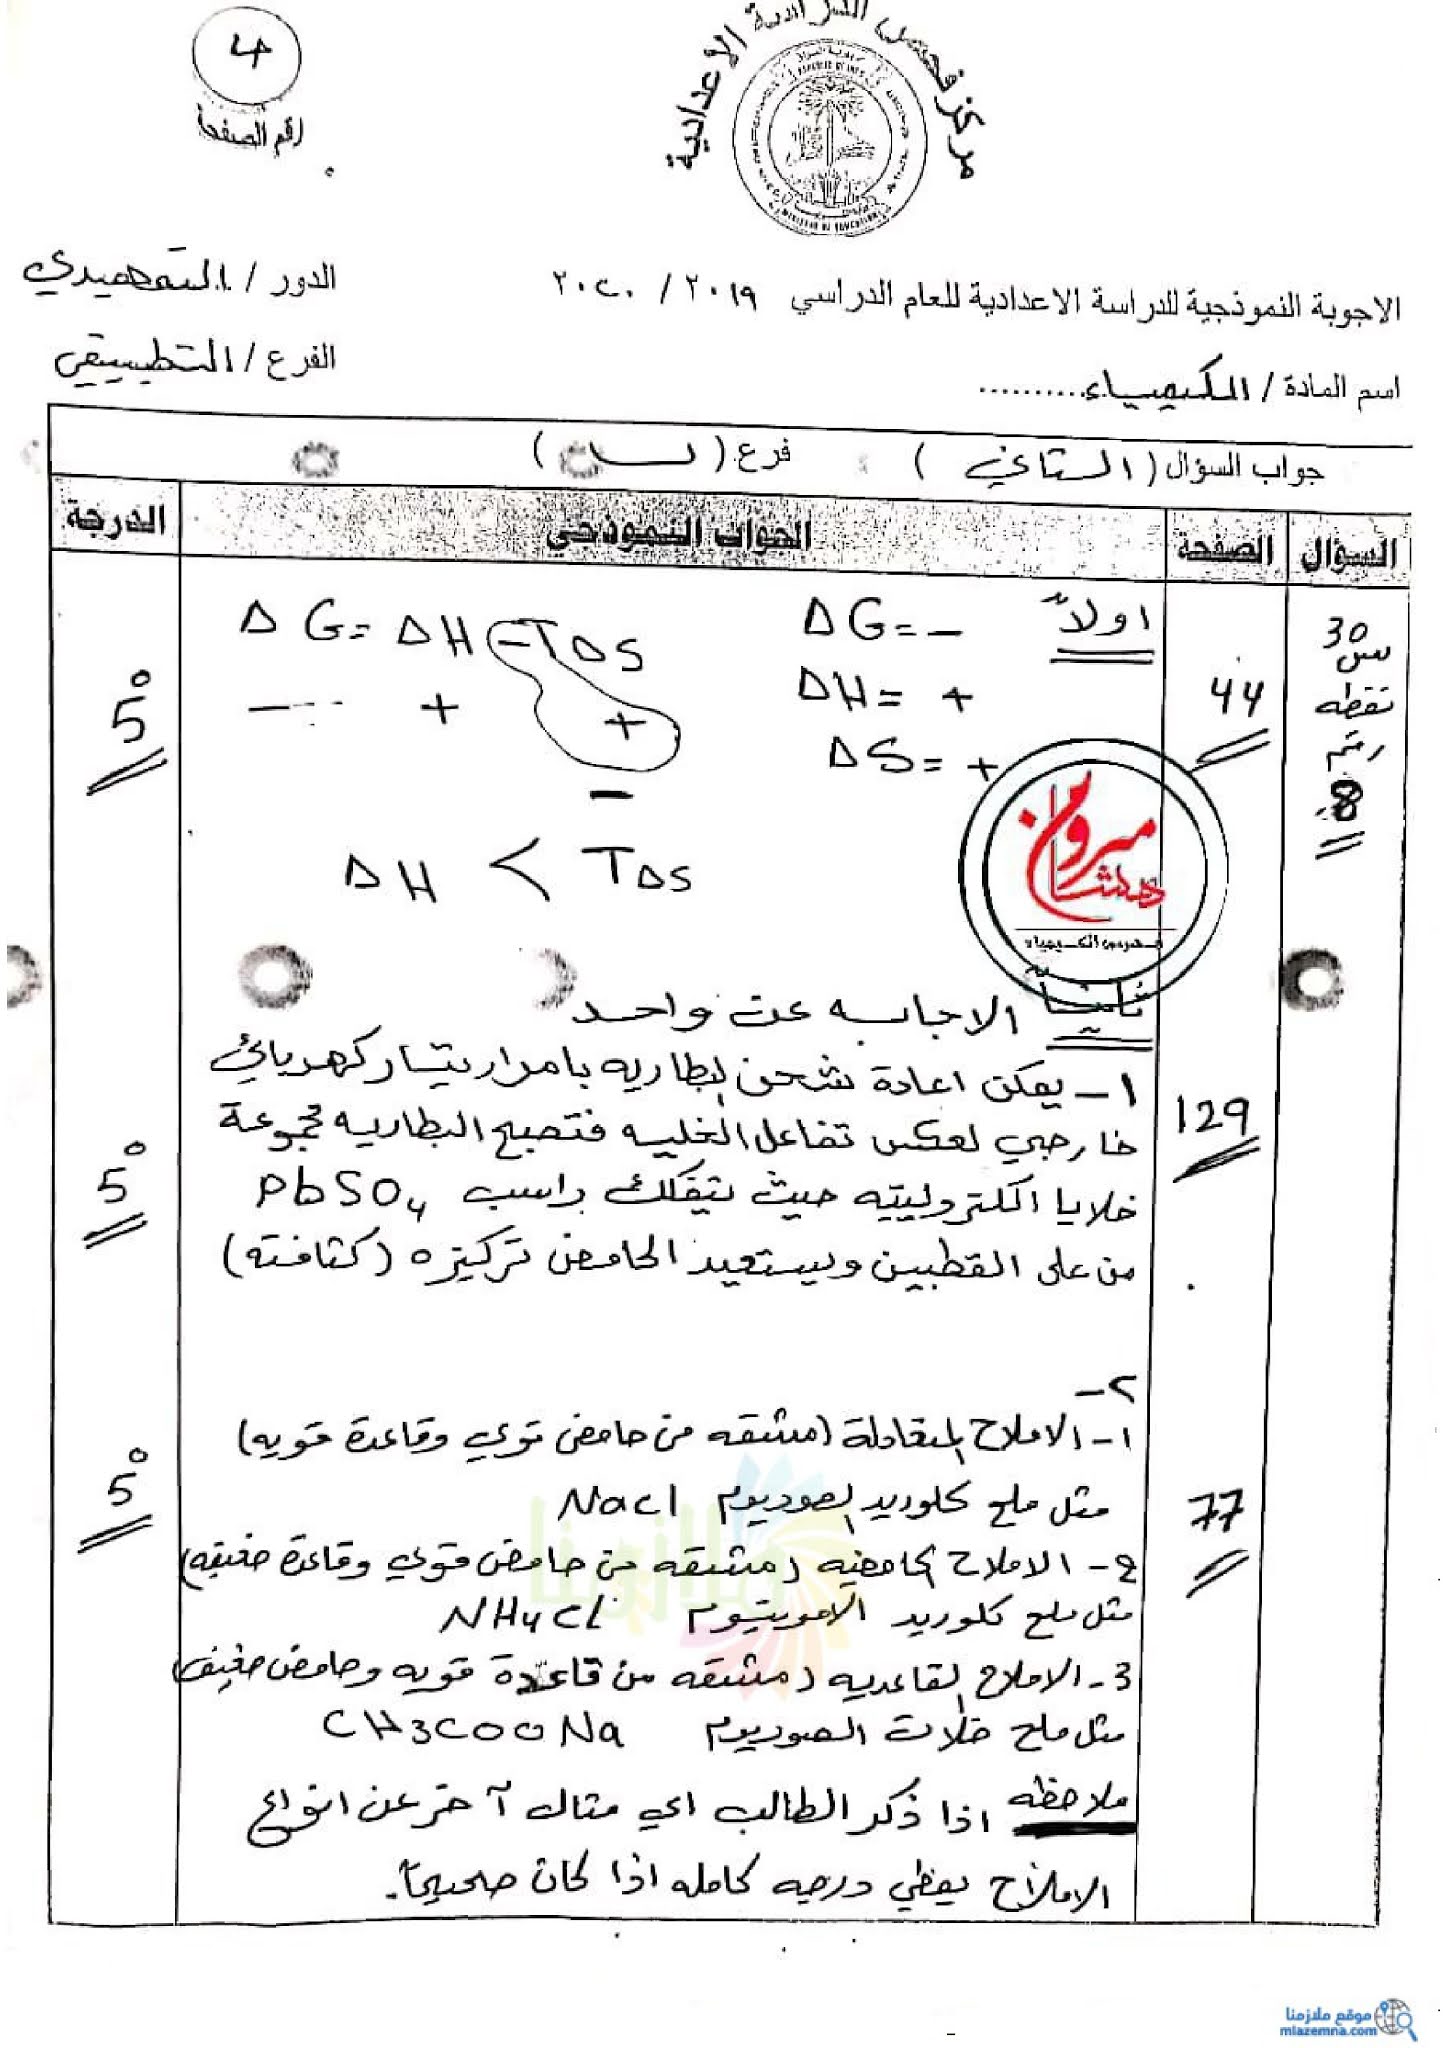 4
رقم الصفحة
مركز فحص الدراسة الاعدادية
الاجوبة النموذجية للدراسة الاعدادية للعام الدراسي ٢٠١٩ / ٢٠٢٠ الدور / التمهيدي
اسم المادة / الكيمياء.......... الفرع / التطبيقي
جواب السؤال ( الثاني ) فرع ( ب )
السؤال الصفحة الجواب النموذجي الدرجة
س 30
نقطه
رقم
8
44
5°
اولاً ΔG = − ΔG = ΔH − TΔS
ΔH = + − + +
ΔS = + −
ΔH < TΔS
ميروان هشام
مدرس الكيمياء
ثانياً الاجابه عن واحد
129
5°
1 – يمكن اعادة شحن البطاريه بامرار تيار كهربائي
خارجي لعكس تفاعل الخليه فتصبح البطاريه مجموعة
خلايا الكتروليتيه حيث يتفكك راسب PbSO4
من على القطبين ويستعيد الحامض تركيزه (كثافته)
٢ –
77
5°
1 – الاملاح المتعادلة (مشتقه من حامض قوي وقاعدة قويه)
مثل ملح كلوريد الصوديوم NaCl
2 – الاملاح الحامضيه (مشتقه من حامض قوي وقاعدة ضعيفه)
مثل ملح كلوريد الامونيوم NH4Cl
3 – الاملاح القاعديه (مشتقه من قاعدة قويه وحامض ضعيف)
مثل ملح خلات الصوديوم CH3COONa
ملاحظه اذا ذكر الطالب اي مثال آخر عن انواع
الاملاح يعطي درجه كامله اذا كان صحيحاً.
ملازمنا
موقع ملازمنا
mlazemna.com